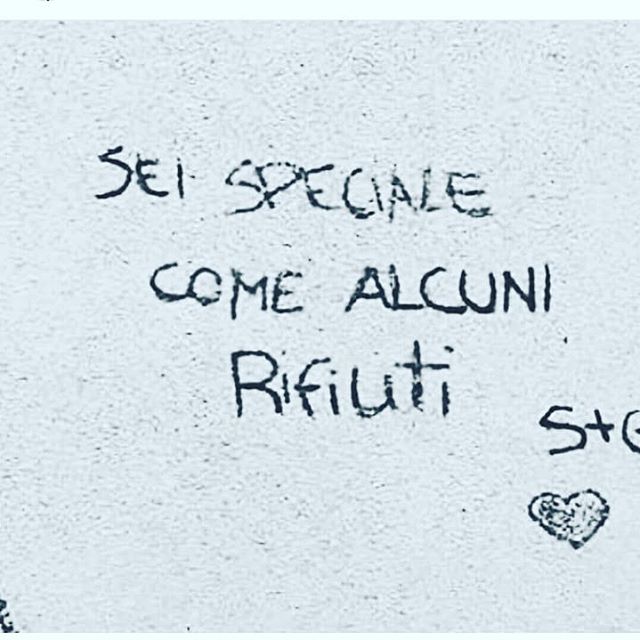 SEI SPECIALE
COME ALCUNI
RifiUti
S+G